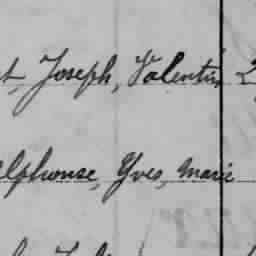 t, Joseph, Valentin
Alphonse, Yves, Marie